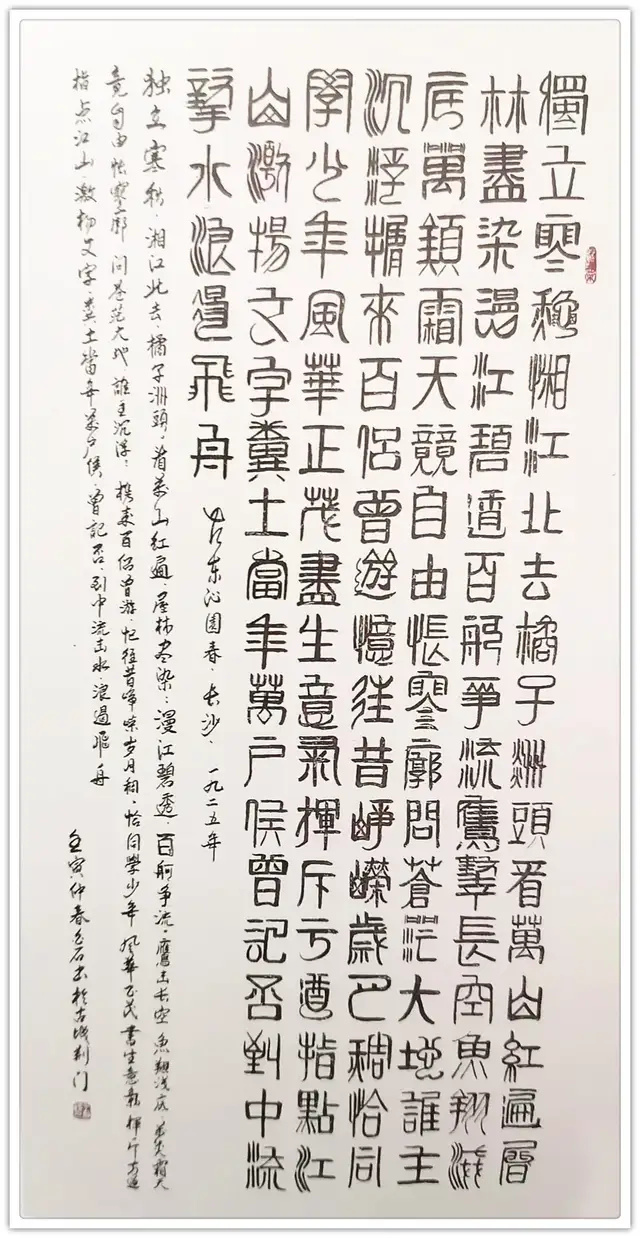 獨立寒穐湘江北去橘子洲頭看萬山紅遍層
林盡染漫江碧透百舸爭流鷹擊長空魚翔淺
底萬類霜天競自由悵寥廓問蒼茫大地誰主
沉浮攜來百侶曾遊憶往昔崢嶸歲月稠恰同
學少年風華正茂書生意氣揮斥方遒指點江
山激揚文字糞土當年萬戶侯曾記否到中流
擊水浪遏飛舟
沁園春·长沙·一九二五年
独立寒秋，湘江北去，橘子洲頭，看萬山红遍，层林尽染；漫江碧透，百舸争流，鹰击长空，鱼翔浅底，万类霜天
竞自由，怅寥廓，问苍茫大地，谁主沉浮？携来百侣曾游，忆往昔峥嵘岁月稠，恰同学少年，风华正茂，書生意氣，挥斥方遒
指点江山，激扬文字，粪土當年万户侯，曾記否，到中流击水，浪遏飛舟
壬寅仲春石书於古城荆门